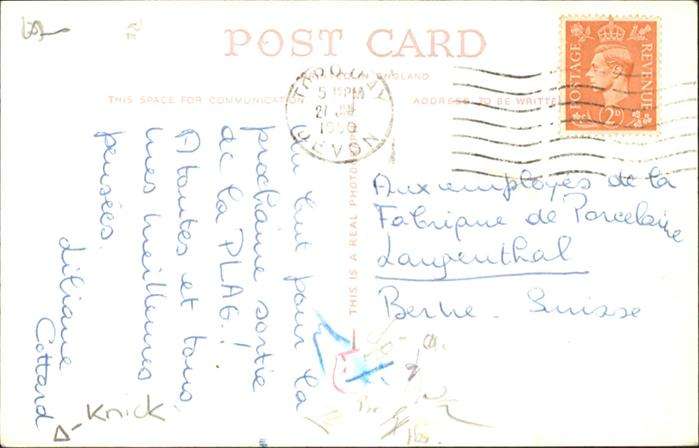 POST CARD
PRINTED IN ENGLAND
THIS SPACE FOR COMMUNICATION
ADDRESS TO BE WRITTEN
THIS IS A REAL PHOTOGRAPH
TORQUAY
5 PM
21
1950
DEVON
POSTAGE
REVENUE
2D
Aux employés de la
Fabrique de Porcelaine
Langenthal
Berne - Suisse
but pour la
prochaine sortie
de la PLAG.!
A toutes et tous
mes meilleures
pensées.
Liliane
Cottard
Knick